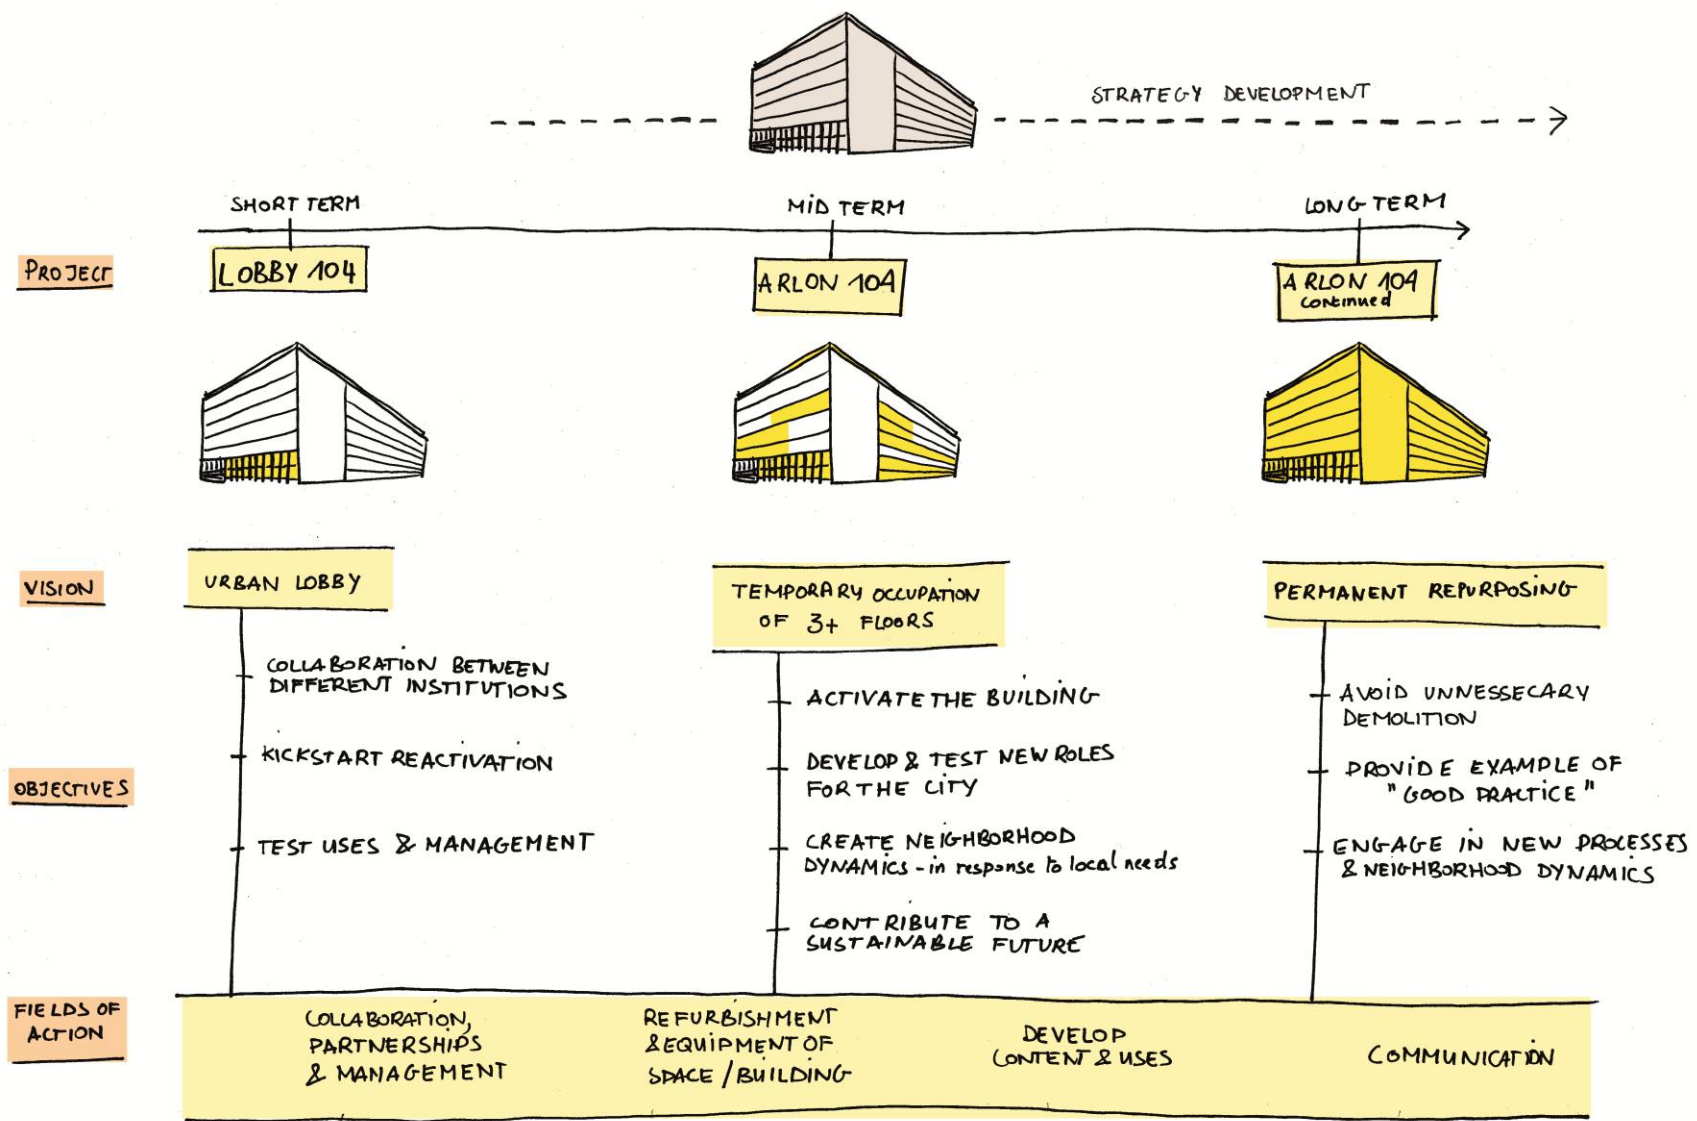 STRATEGY DEVELOPMENT
SHORT TERM
MID TERM
LONG TERM
PROJECT
LOBBY 104
ARLON 104
ARLON 104
continued
VISION
URBAN LOBBY
TEMPORARY OCCUPATION
OF 3+ FLOORS
PERMANENT REPURPOSING
OBJECTIVES
COLLABORATION BETWEEN
DIFFERENT INSTITUTIONS
KICKSTART REACTIVATION
TEST USES & MANAGEMENT
ACTIVATE THE BUILDING
DEVELOP & TEST NEW ROLES
FOR THE CITY
CREATE NEIGHBORHOOD
DYNAMICS - in response to local needs
CONTRIBUTE TO A
SUSTAINABLE FUTURE
AVOID UNNESSECARY
DEMOLITION
PROVIDE EXAMPLE OF
"GOOD PRACTICE"
ENGAGE IN NEW PROCESSES
& NEIGHBORHOOD DYNAMICS
FIELDS OF
ACTION
COLLABORATION,
PARTNERSHIPS
& MANAGEMENT
REFURBISHMENT
& EQUIPMENT OF
SPACE / BUILDING
DEVELOP
CONTENT & USES
COMMUNICATION